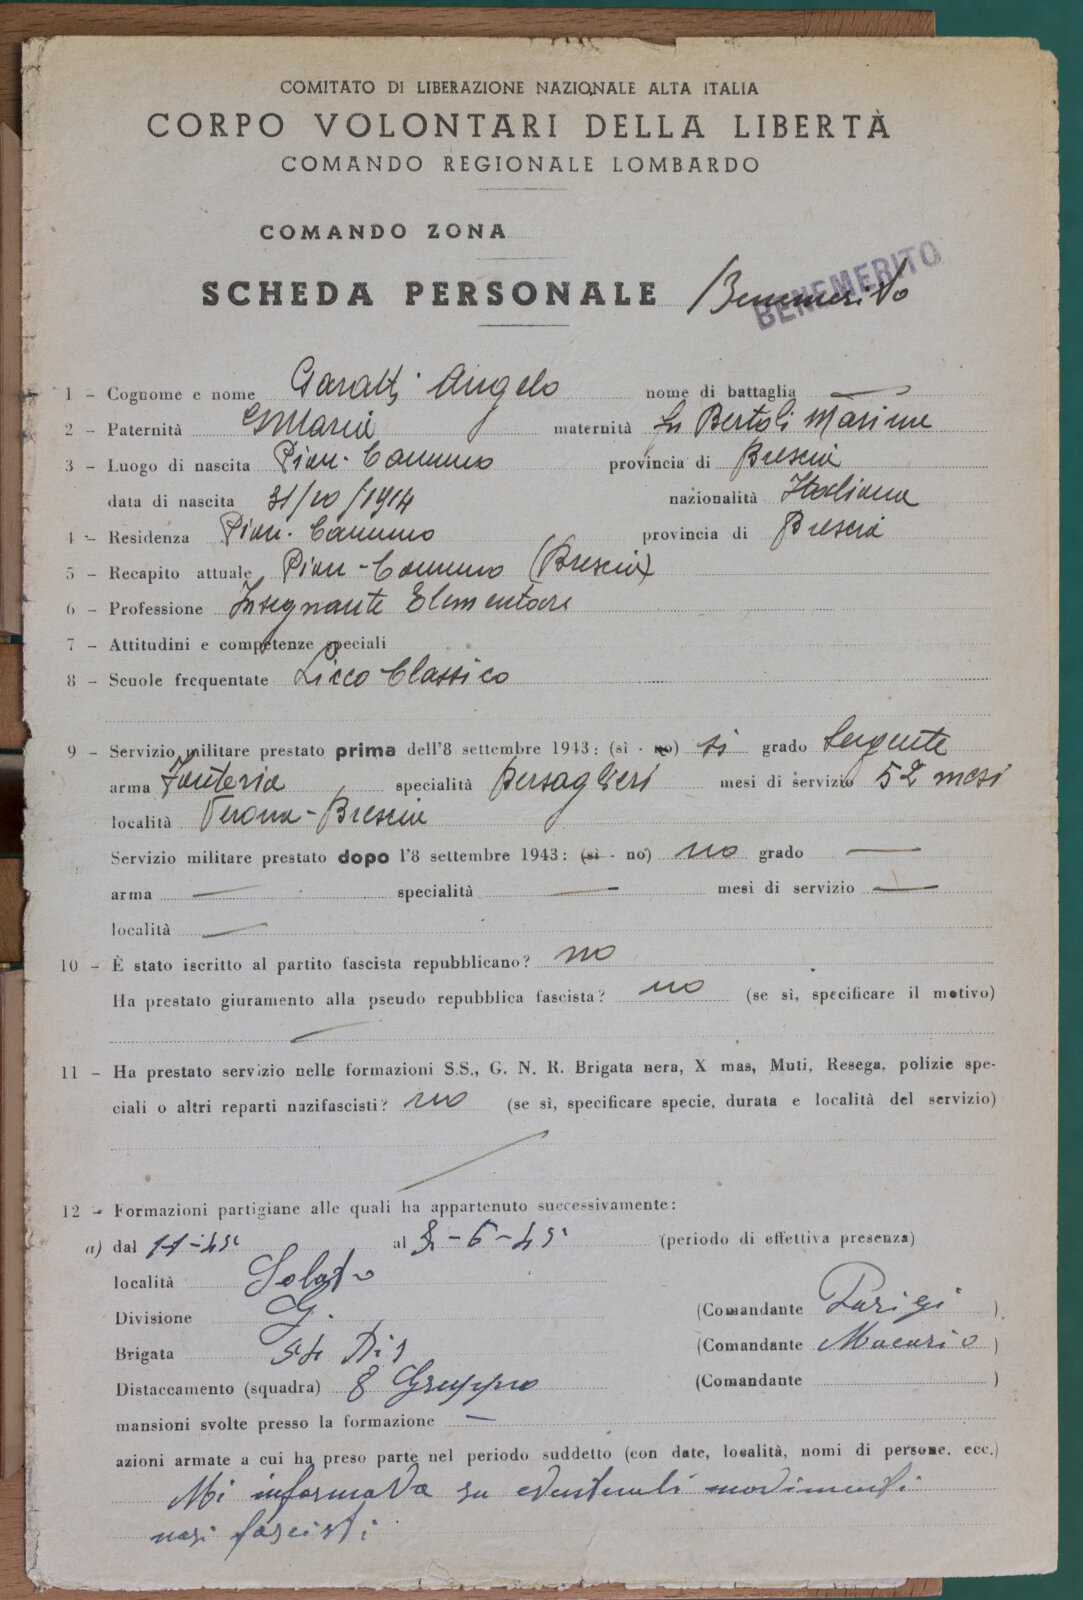 COMITATO DI LIBERAZIONE NAZIONALE ALTA ITALIA
CORPO VOLONTARI DELLA LIBERTÀ
COMANDO REGIONALE LOMBARDO
COMANDO ZONA
SCHEDA PERSONALE Benemerito BENEMERITO
1 - Cognome e nome Garatti Angelo nome di battaglia —
2 - Paternità maternità fu Bertoli
3 - Luogo di nascita Pian-Camuno provincia di Brescia
data di nascita 31/10/1914 nazionalità Italiana
4 - Residenza Pian-Camuno provincia di Brescia
5 - Recapito attuale Pian-Camuno (Brescia)
6 - Professione Insegnante Elementare
7 - Attitudini e competenze speciali
8 - Scuole frequentate Liceo Classico
9 - Servizio militare prestato prima dell'8 settembre 1943: (sì - no) si grado Sergente
arma Fanteria specialità Bersaglieri mesi di servizio 52 mesi
località Verona-Brescia
Servizio militare prestato dopo l'8 settembre 1943: (sì - no) no grado —
arma — specialità — mesi di servizio —
località —
10 - È stato iscritto al partito fascista repubblicano? no
Ha prestato giuramento alla pseudo repubblica fascista? no (se sì, specificare il motivo)
11 - Ha prestato servizio nelle formazioni S.S., G. N. R. Brigata nera, X mas, Muti, Resega, polizie spe-
ciali o altri reparti nazifascisti? no (se sì, specificare specie, durata e località del servizio)
12 - Formazioni partigiane alle quali ha appartenuto successivamente:
a) dal 1-1-45 al -6-45 (periodo di effettiva presenza)
località
Divisione G. (Comandante Parigi )
Brigata 54 (Comandante Macario )
Distaccamento (squadra) 8 Gruppo (Comandante )
mansioni svolte presso la formazione —
azioni armate a cui ha preso parte nel periodo suddetto (con date, località, nomi di persone, ecc.)
Mi informava su eventuali movimenti
nazi fascisti